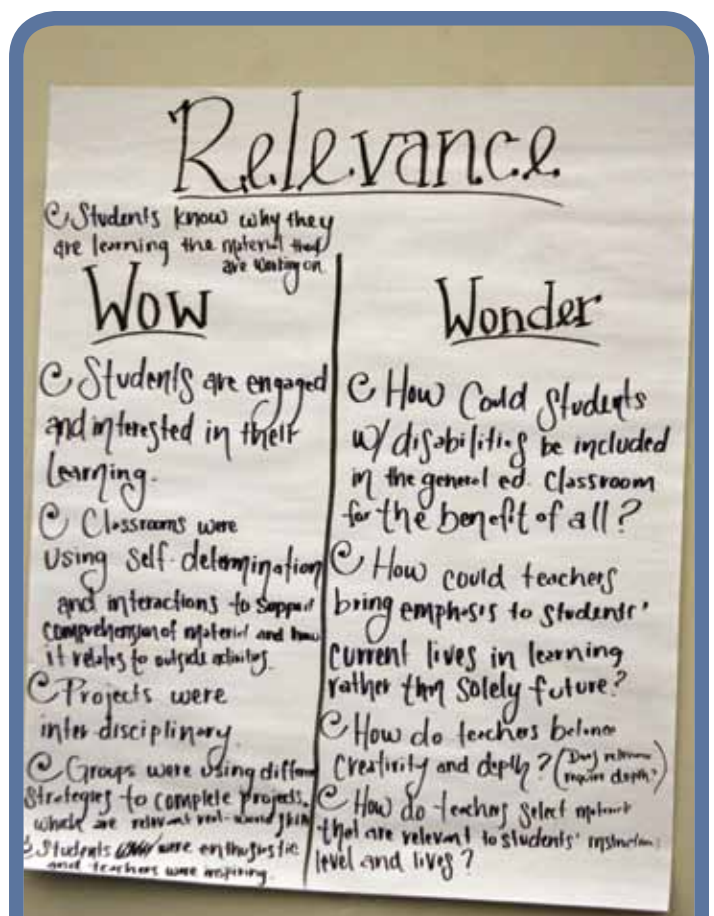 Relevance
Students know why they
are learning the material that
are working on.
Wow
Students are engaged
and interested in their
learning.
Classrooms were
using self-determination
and interactions to support
comprehension of material and how
it relates to outside activities.
Projects were
inter disciplinary.
Groups were using different
strategies to complete projects,
which are relevant real-world skills
Students were enthusiastic
and teachers were inspiring.
Wonder
How could students
w/ disabilities be included
in the general ed. classroom
for the benefit of all?
How could teachers
bring emphasis to students'
current lives in learning
rather than solely future?
How do teachers balance
creativity and depth? (Does relevance
require depth?)
How do teachers select
that are relevant to students'
level and lives?